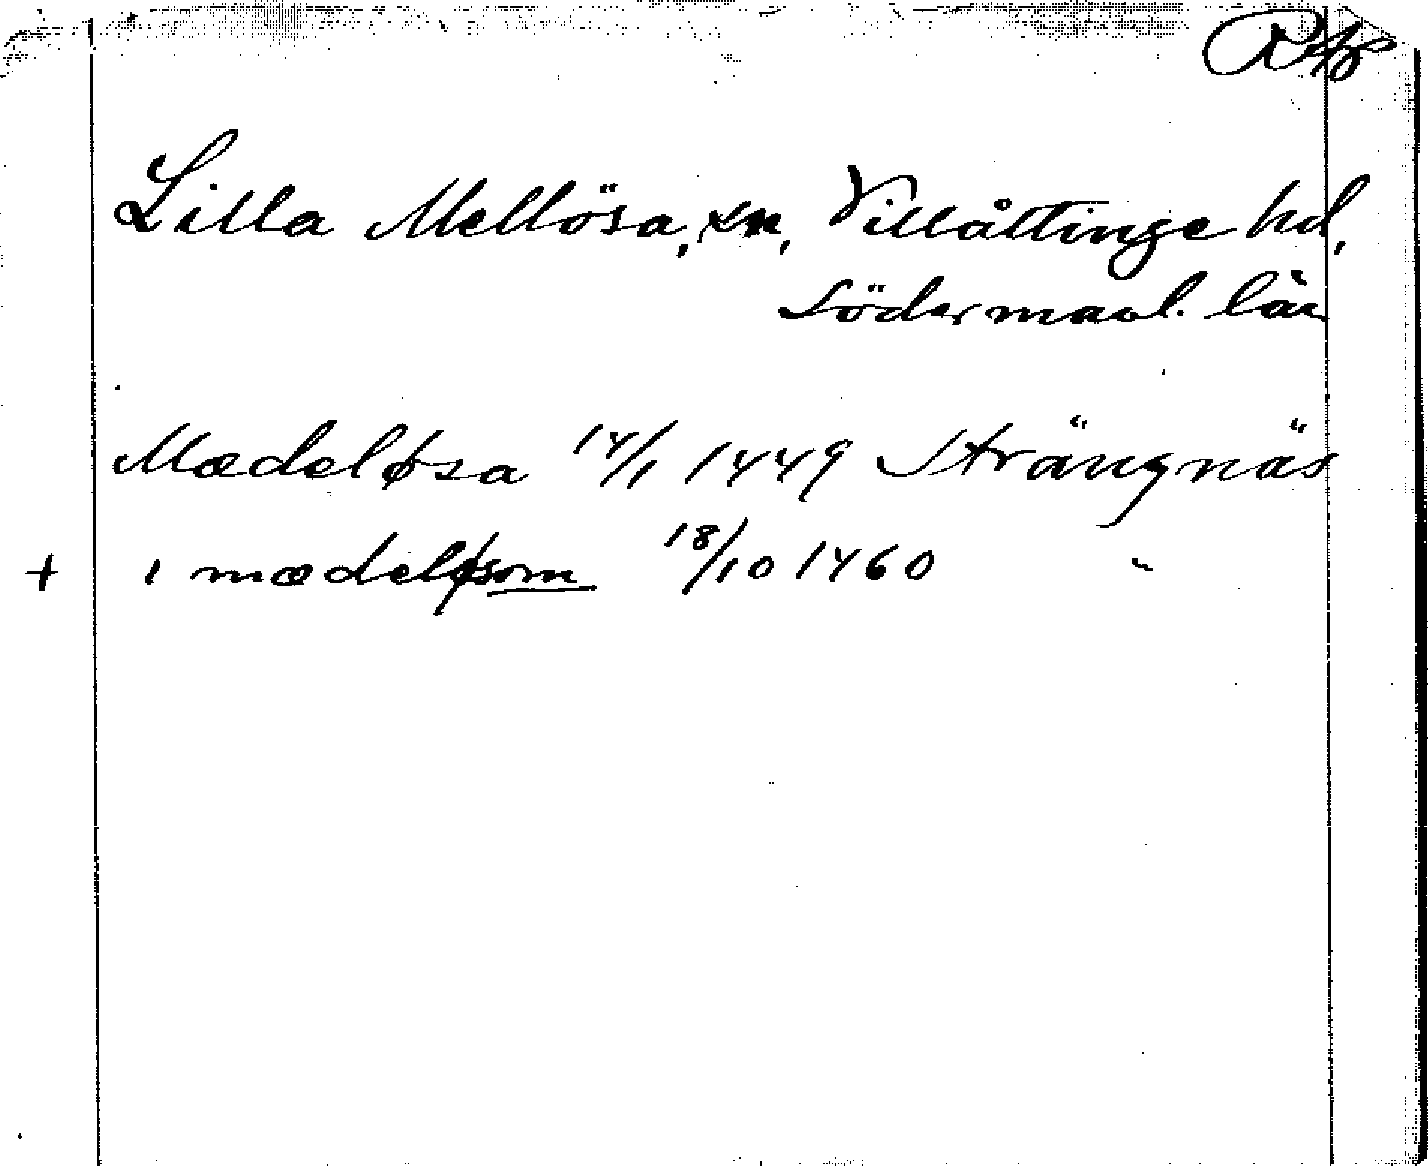 RAp
Lilla Mellösa, sn, Villåttinge hd,
Södermanl. län
Mædeløsa 14/1 1449 Strängnäs
+ i mædeløsom 18/10 1460 "